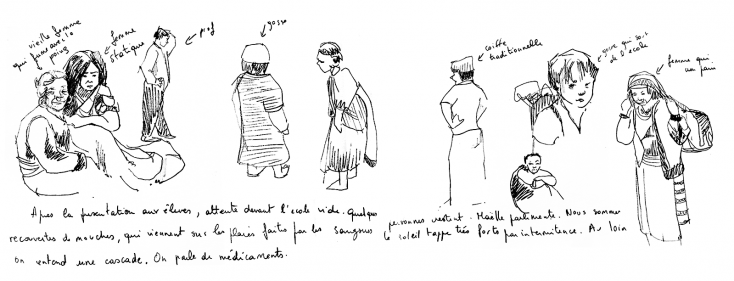 vieille femme
qui fume avec le
poing
femme
statique
prof
gosse
coiffe
traditionnelle
gosse qui sort
de l'école
femme qui
a un faim
Après la présentation aux élèves, attente devant l'école vide. Quelques personnes restent. Maëlle parlemente. Nous sommes
recouvertes de mouches, qui viennent sur les plaies faites par les sangsues le soleil tappe très forte par intermitence. Au loin
on entend une cascade. On parle de médicaments.